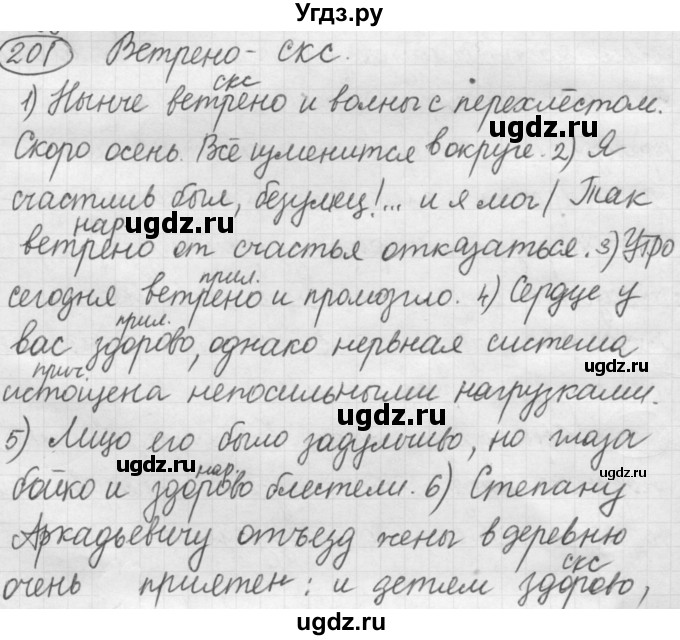 Угдз.ру
201 Ветрено - скс.
скс
1) Нынче ветрено и волны с перехлёстом.
Скоро осень. Всё изменится в округе. 2) Я
счастлив был, безумец!... и я мог / Так
нар
ветрено от счастья отказаться. 3) Утро
прил.
сегодня ветрено и промозгло. 4) Сердце у
прил.
вас здорово, однако нервная система
прич
истощена непосильными нагрузками.
5) Лицо его было задумчиво, но глаза
нар.
бойко и здорово блестели. 6) Степану
Аркадьевичу отъезд жены в деревню
скс
очень приятен: и детям здорово,
ugdz.ru
ugdz.ru
ugdz.ru
ugdz.ru
ugdz.ru
ugdz.ru
ugdz.ru
ugdz.ru
ugdz.ru
ugdz.ru